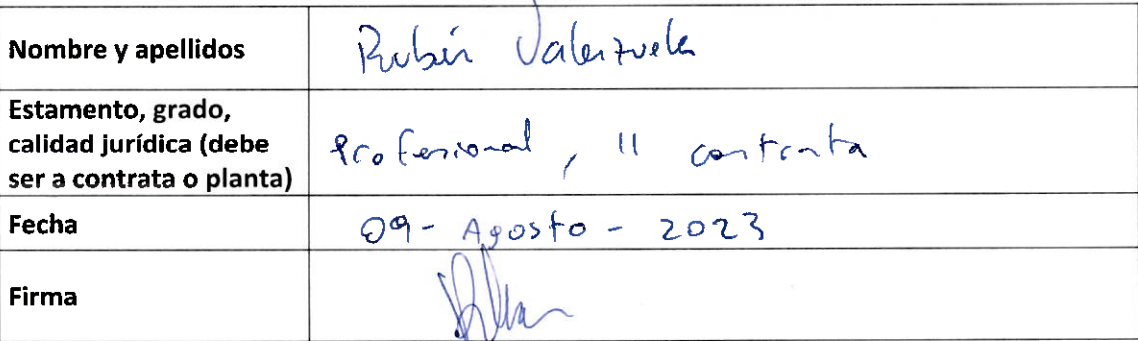 Nombre y apellidos
Rubén Valenzuela
Estamento, grado,
calidad jurídica (debe
ser a contrata o planta)
Profesional, 11 contrata
Fecha
09- Agosto - 2023
Firma